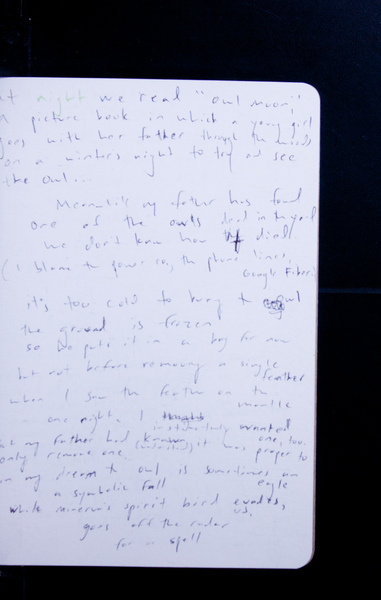 at night we read "Owl Moon,"
a picture book in which a young girl
goes with her father through the woods
on a winters night to try and see
the owl...
Meanwhile my father has found
one of the owls dead in the yard
we don't know how it died
(I blame the power co, the phone lines,
Google Fiber)
it's too cold to bury the owl
the ground is frozen
so he puts it in a bag for now
but not before removing a single
feather
when I saw the feather on the
mantle
one night, I
instantly wanted
one, too.
but my father had known it was proper to
only remove one
in my dream the owl is sometimes an
eagle
a symbolic fall
while minerva's spirit bird evades
us,
goes off the radar
for a spell